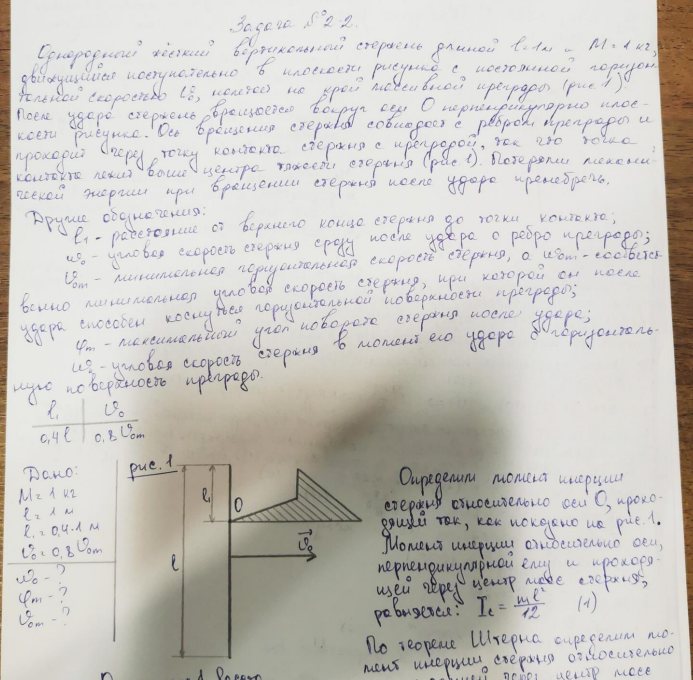 Задача №2-2.
Однородный жёсткий вертикальный стержень длиной l=1м и M=1 кг,
движущийся поступательно в плоскости рисунка с постоянной горизон-
тальной скоростью v₀, налетает на край массивной преграды (рис.1)
После удара стержень вращается вокруг оси О перпендикулярно плос-
кости рисунка. Ось вращения стержня совпадает с ребром преграды и
проходит через точку контакта стержня с преградой, так что точка
контакта лежит выше центра тяжести стержня (рис.1). Потерями механи-
ческой энергии при вращении стержня после удара пренебречь.
Другие обозначения:
l₁ - расстояние от верхнего конца стержня до точки контакта;
ω₀ - угловая скорость стержня сразу после удара о ребро преграды;
v₀m - минимальная горизонтальная скорость стержня, а ω₀m - соответс
венно минимальная угловая скорость стержня, при которой он после
удара способен коснуться горизонтальной поверхности преграды;
φm - максимальный угол поворота стержня после удара;
угловая скорость стержня в момент его удара о горизонталь-
ную поверхность преграды.
l₁ v₀
0,4l 0,8 v₀m
Дано:
M = 1 кг
l = 1 м
l₁ = 0,4·1 м
v₀ = 0,8 v₀m
ω₀ - ?
φm - ?
v₀m - ?
рис.1
l₁
O
l
v₀
Определим момент инерции
стержня относительно оси О, прохо-
дящей так, как показано на рис.1.
Момент инерции относительно оси,
перпендикулярной ему и проходя-
щей через центр масс стержня,
равняется: I_c = ml²/12 (1)
По теореме Штерна определим мо-
мент инерции стержня относительно
через центр масс